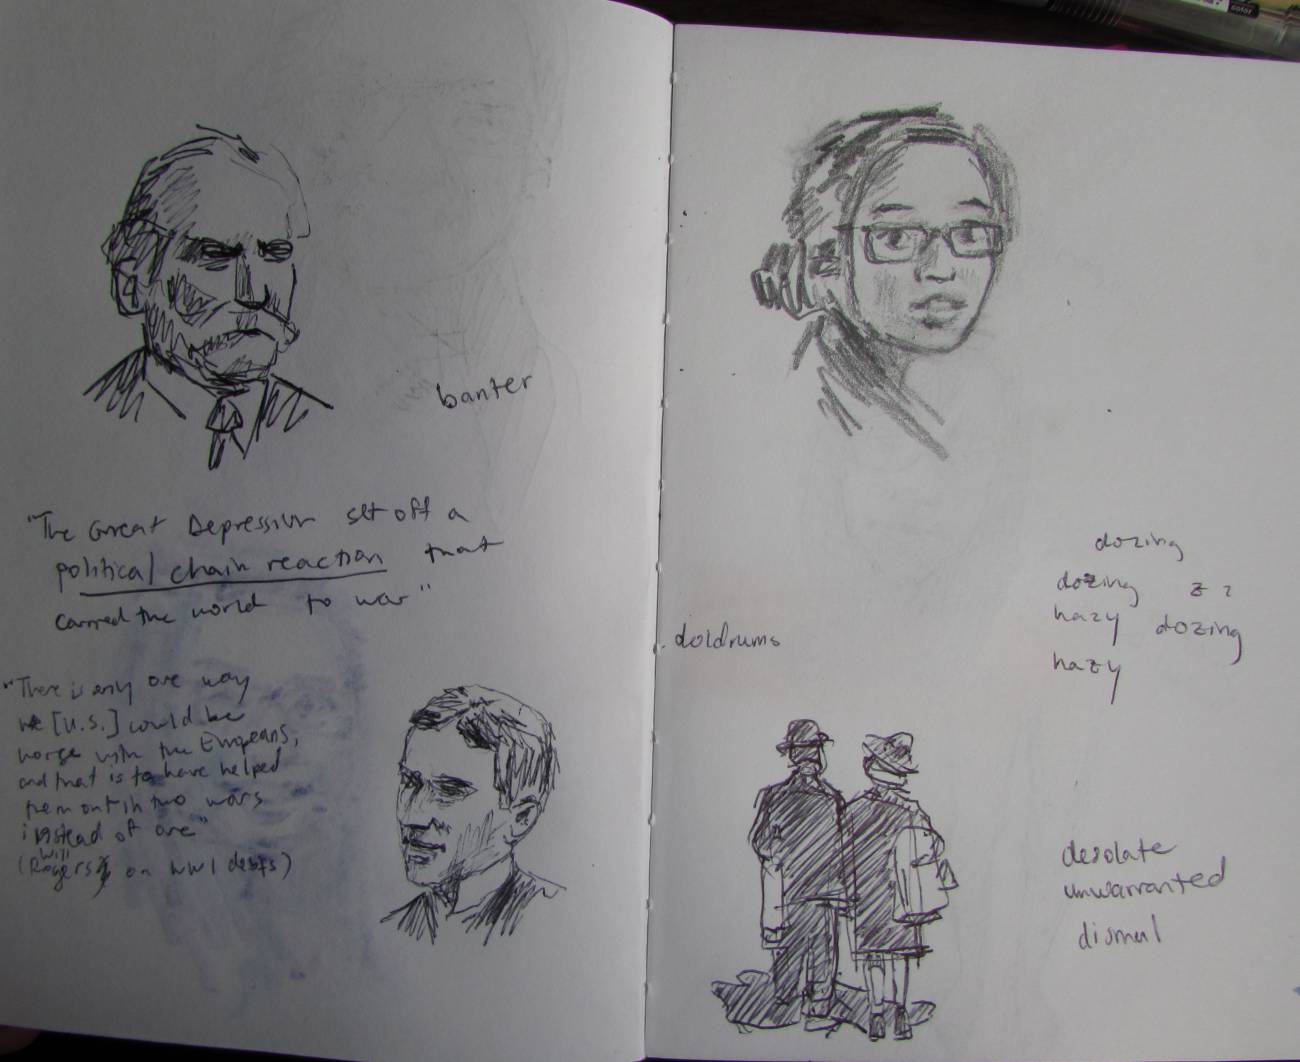 banter
"The Great Depression set off a
political chain reaction that
carried the world to war"
"There is only one way
we [U.S.] could be
worse with the Europeans,
and that is to have helped
them out in two wars
instead of one"
(Will Rogers on WWI debts)
dozing
dozing z z
hazy dozing
hazy
doldrums
desolate
unwarranted
dismal
color